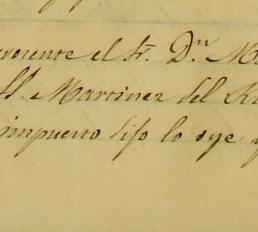 presente el Sr. Dn. M
Martinez del R
impuesto dijo lo oye y